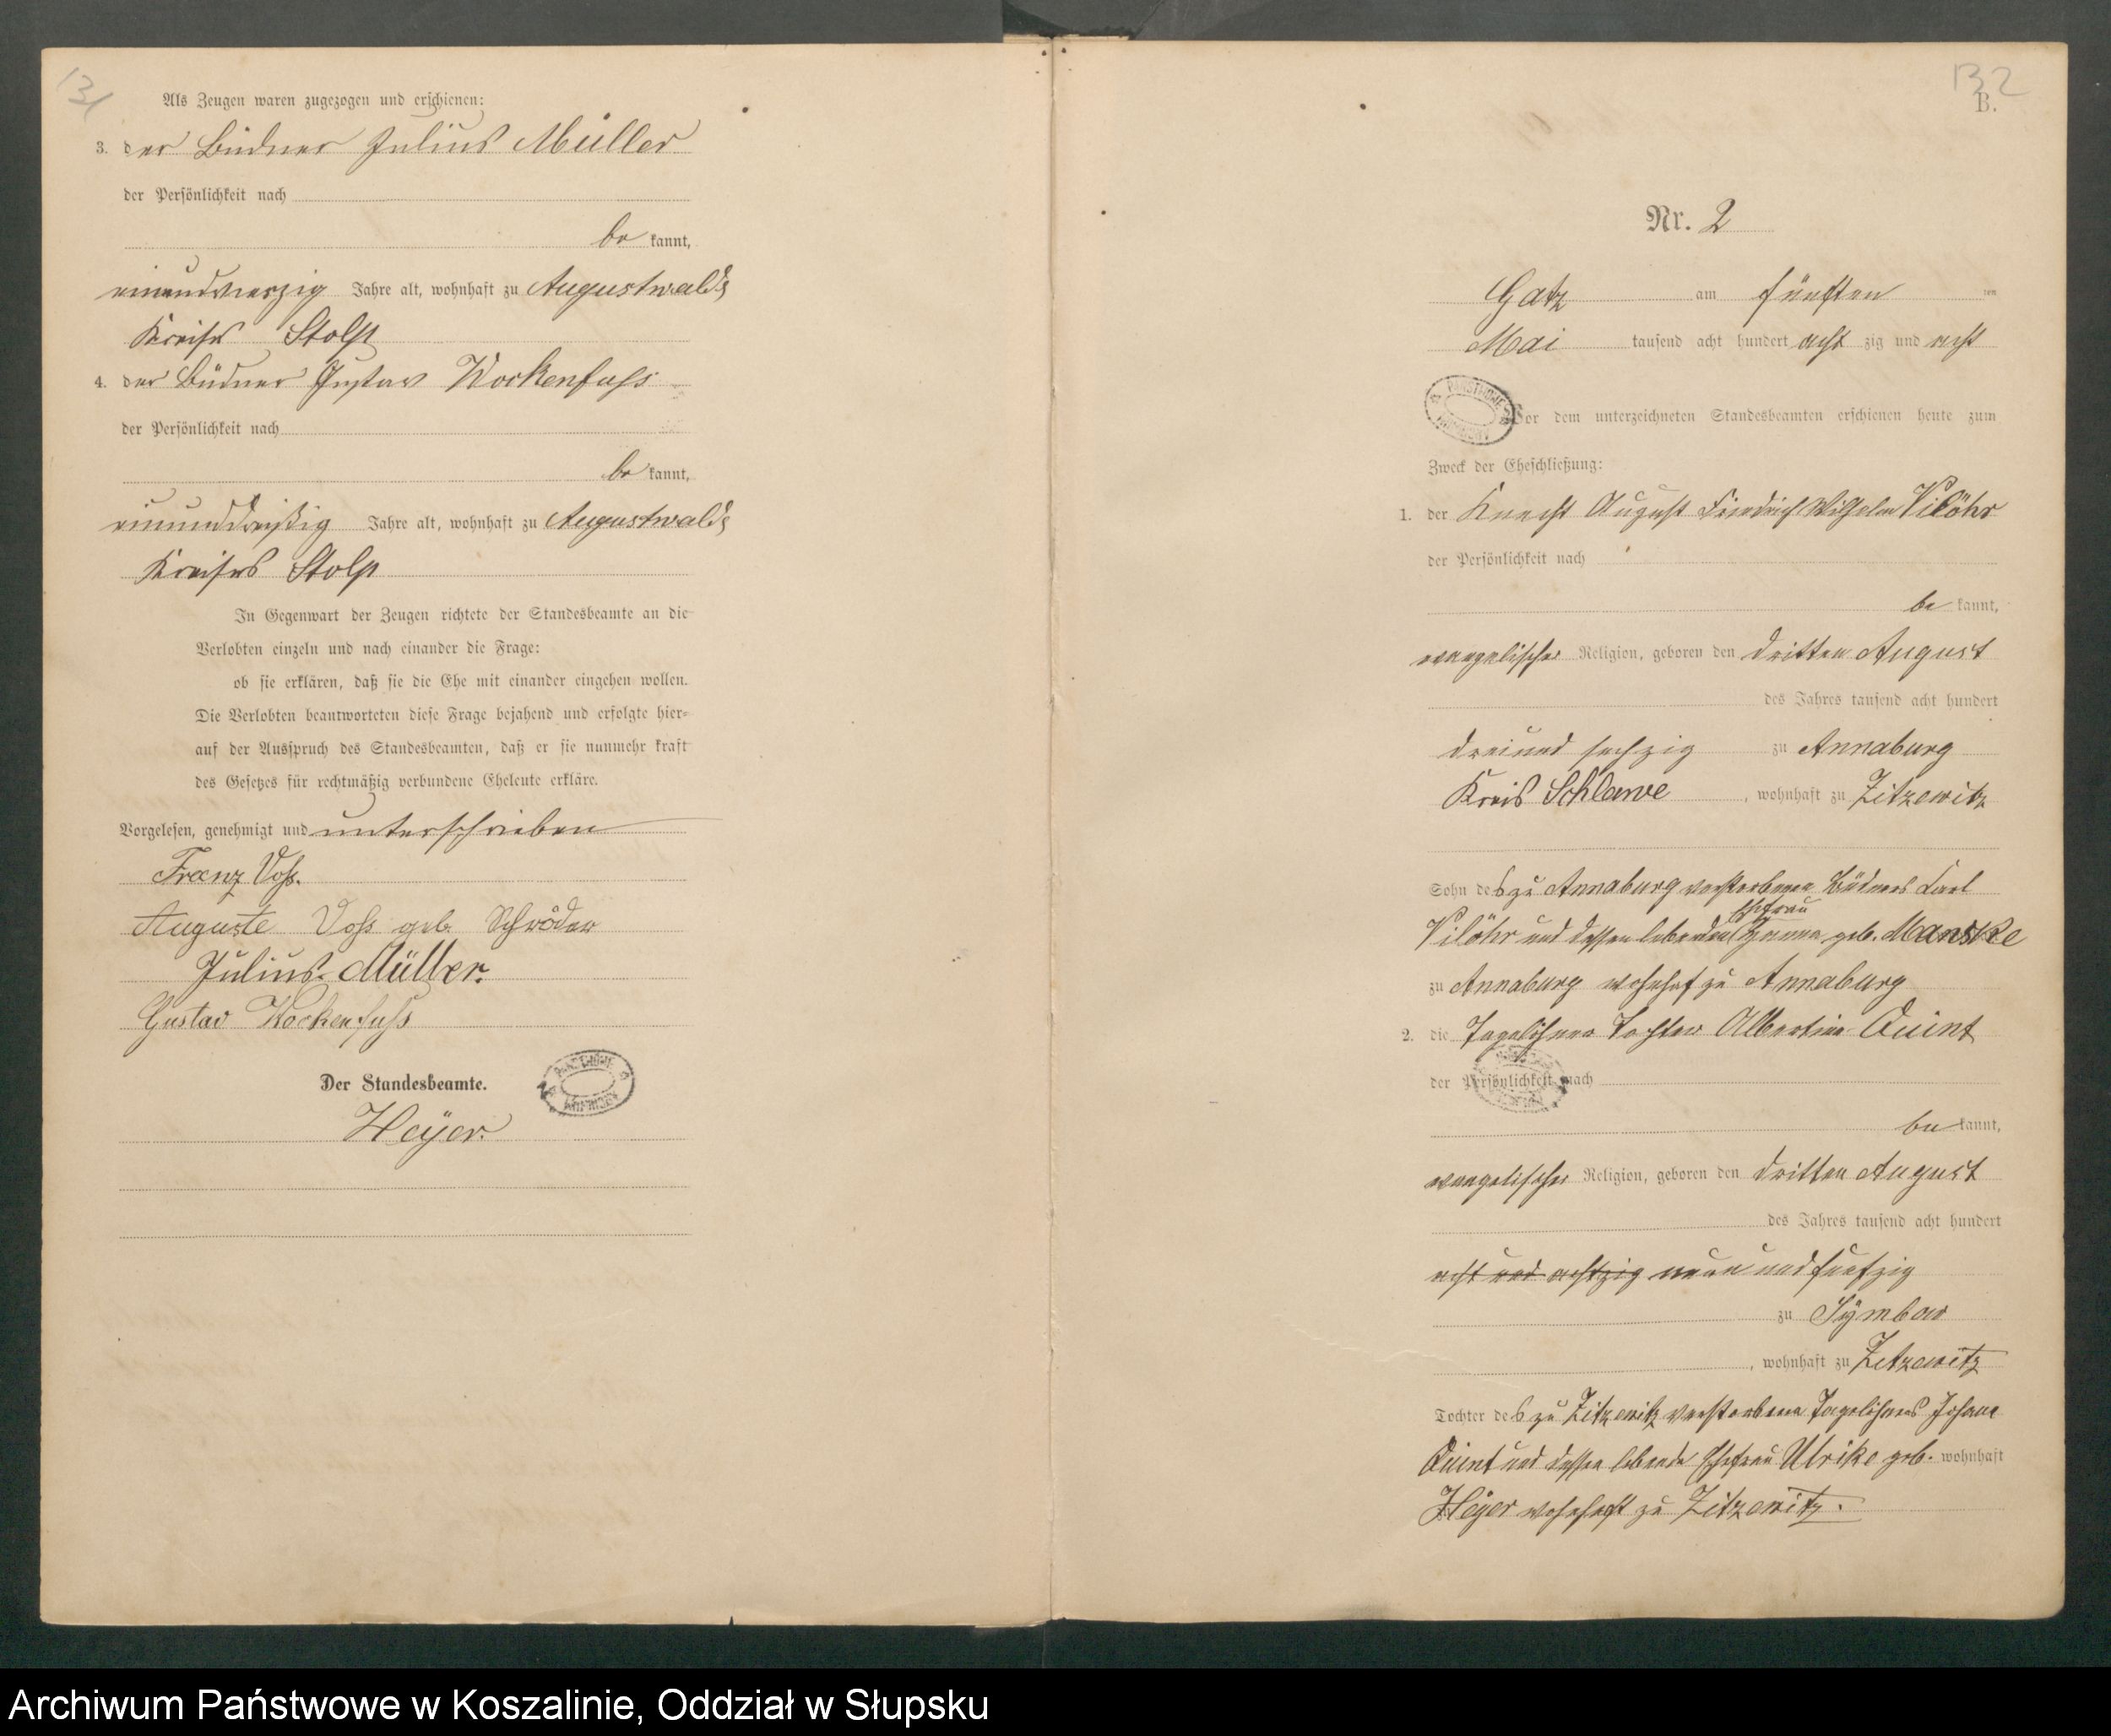 131
Als Zeugen waren zugezogen und erschienen:
3. der Büdner Julius Müller
der Persönlichkeit nach
be kannt,
einundvierzig Jahre alt, wohnhaft zu Augustwalde
Kreises Stolp
4. der Büdner Gustav Wockenfuss
der Persönlichkeit nach
be kannt,
einunddreißig Jahre alt, wohnhaft zu Augustwalde
Kreises Stolp
In Gegenwart der Zeugen richtete der Standesbeamte an die
Verlobten einzeln und nach einander die Frage:
ob sie erklären, daß sie die Ehe mit einander eingehen wollen.
Die Verlobten beantworteten diese Frage bejahend und erfolgte hier-
auf der Ausspruch des Standesbeamten, daß er sie nunmehr kraft
des Gesetzes für rechtmäßig verbundene Eheleute erkläre.
Vorgelesen, genehmigt und unterschrieben
Franz Voß.
Auguste Voß geb. Schröder
Julius Müller.
Gustav Wockenfuß
Der Standesbeamte.
Heyer.
132
B.
Nr. 2
Gatz am fünften ten
Mai tausend acht hundert acht zig und acht
Vor dem unterzeichneten Standesbeamten erschienen heute zum
Zweck der Eheschließung:
1. der Knecht August Friedrich Wilhelm Vilöhr
der Persönlichkeit nach
be kannt,
evangelischer Religion, geboren den dritten August
des Jahres tausend acht hundert
dreiund sechzig zu Annaburg
Kreis Schlawe, wohnhaft zu Zitzewitz
Sohn des zu Annaburg verstorbenen Büdners Carl
Ehefrau
Vilöhr und dessen lebenden geb. Manske
zu Annaburg wohnhaf zu Annaburg
2. die Tagelöhner Tochter Albertine Quint
der Persönlichkeit nach
be kannt,
evangelischer Religion, geboren den dritten August
des Jahres tausend acht hundert
acht und achtzig neun und fünfzig
zu Symbow
, wohnhaft zu Zitzewitz
Tochter des zu Zitzewitz verstorbenen Tagelöhners Johann
Quint und dessen lebende Ehefrau Ulrike geb. wohnhaft
Heyer wohnhaft zu Zitzewitz.
Archiwum Państwowe w Koszalinie, Oddział w Słupsku